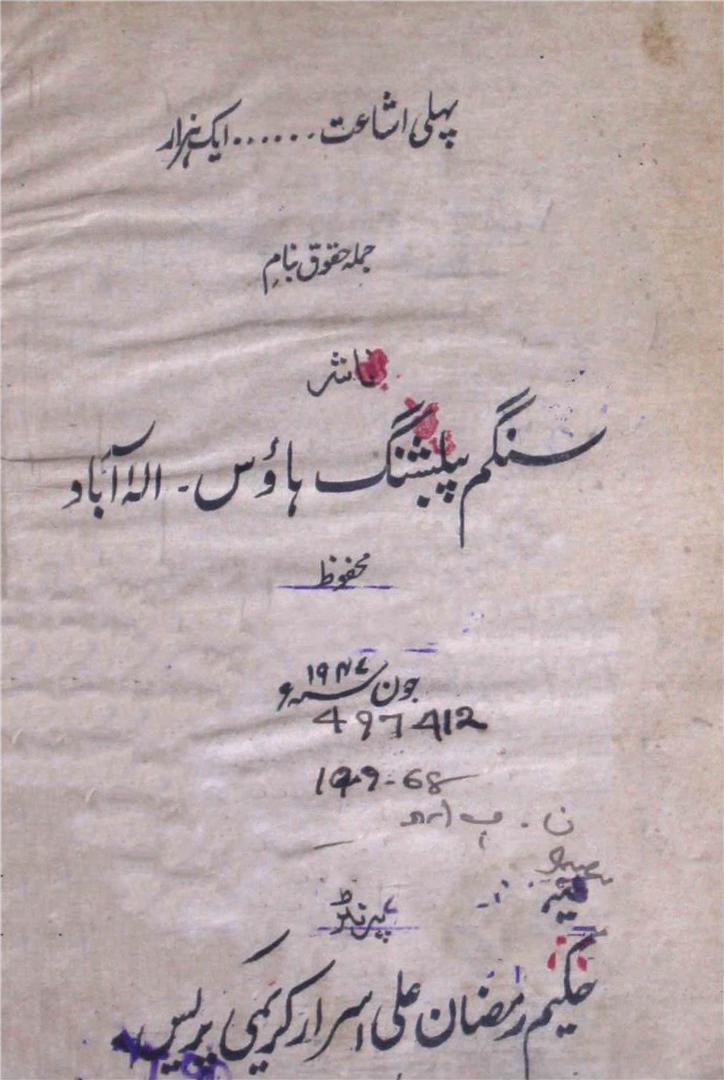 پہلی اشاعت ...... ایک ہزار
جملہ حقوق بنامِ
ناشر
سنگم پبلشنگ ہاؤس - الہٰ آباد
محفوظ
جون سنہ ۱۹۴۷ء
497412
109-68
پرنٹر
حکیم رمضان علی اسرار کریمی پریس